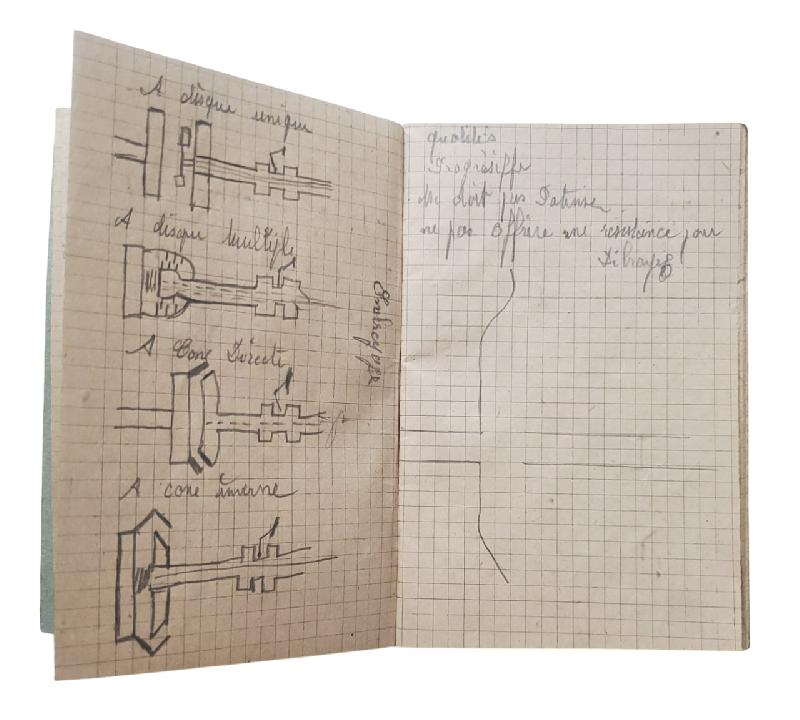 A disque unique
A disque multiple
A Cone Directe
A cone inverne
Embrayage
qualités
Progréssiffe
ne doit pas Patiner
ne pas offrire une résistance pour
Débrayé